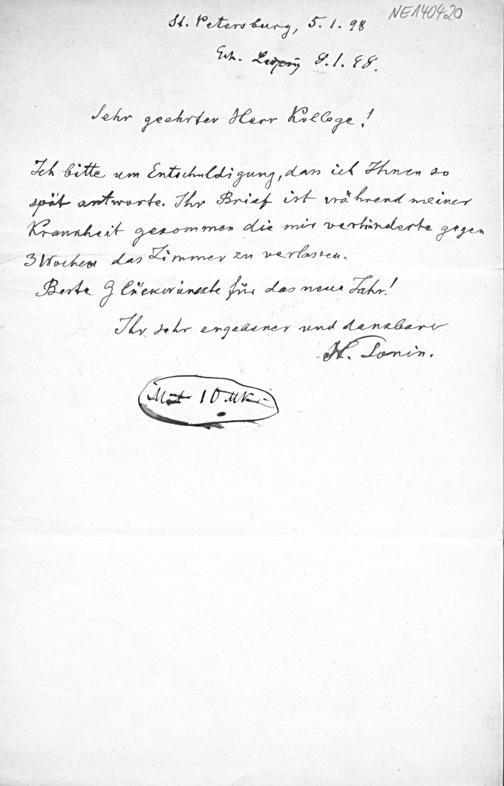 NE140420
St. Petersburg, 5.1.98
Erh. Leipzig 8.1.98.
Sehr geehrter Herr Kollege!
Ich bitte um Entschuldigung, dass ich Ihnen so
spät antworte. Ihr Brief ist während meiner
Krankheit gekommen die mir verhinderte gegen
3 Wochen das Zimmer zu verlassen.
Beste Glückwünsche für das neue Jahr!
Ihr sehr ergebener und dankbarer
H.
Mit 10 Mk